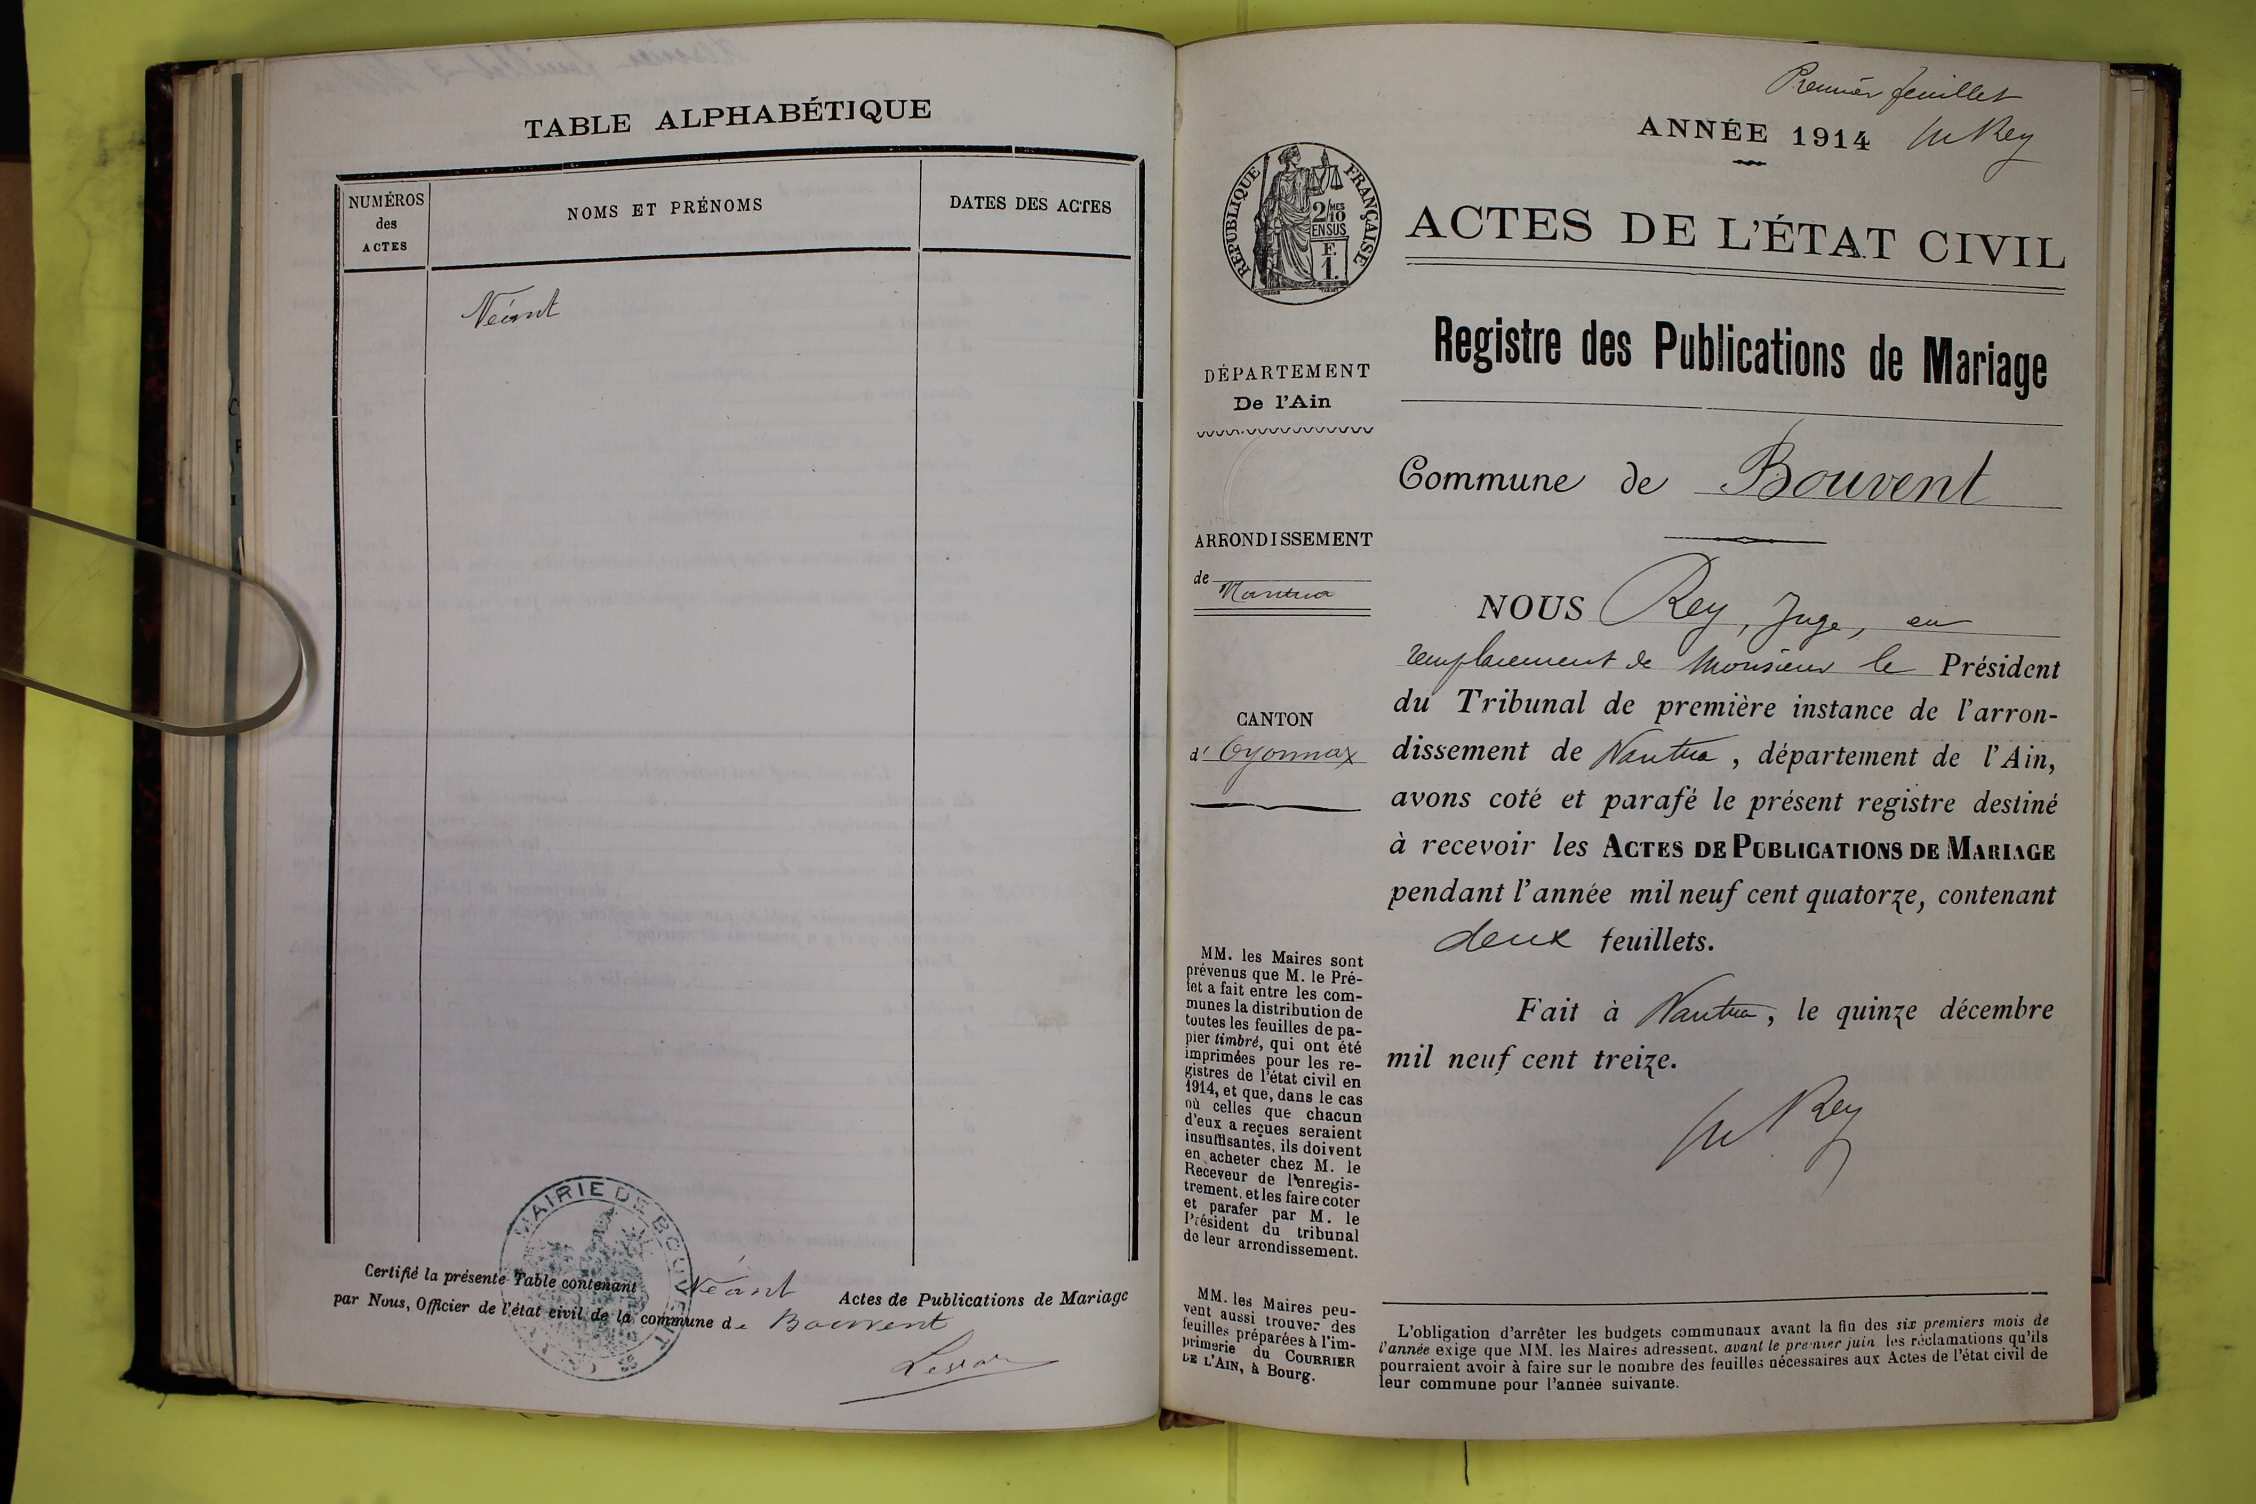 TABLE ALPHABÉTIQUE
NUMÉROS
des
ACTES
NOMS ET PRÉNOMS
DATES DES ACTES
Néant
MAIRIE DE BOUVENT
Certifié la présente Table contenant Néant Actes de Publications de Mariage
par Nous, Officier de l'état civil de la commune de Bouvent
Premier feuillet
ANNÉE 1914 Rey
RÉPUBLIQUE FRANÇAISE
2/10 MES
EN SUS
F.
1.
ACTES DE L'ÉTAT CIVIL
Registre des Publications de Mariage
DÉPARTEMENT
De l'Ain
Commune de Bouvent
ARRONDISSEMENT
de Nantua
CANTON
d' Oyonnax
MM. les Maires sont
prévenus que M. le Pré-
fet a fait entre les com-
munes la distribution de
toutes les feuilles de pa-
pier timbré, qui ont été
imprimées pour les re-
gistres de l'état civil en
1914, et que, dans le cas
où celles que chacun
d'eux a reçues seraient
insuffisantes, ils doivent
en acheter chez M. le
Receveur de l'enregis-
trement, et les faire coter
et parafer par M. le
Président du tribunal
de leur arrondissement.
MM. les Maires peu-
vent aussi trouver des
feuilles préparées à l'im-
primerie du COURRIER
DE L'AIN, à Bourg.
NOUS Rey, Juge, en
remplacement de Monsieur le Président
du Tribunal de première instance de l'arron-
dissement de Nantua, département de l'Ain,
avons coté et parafé le présent registre destiné
à recevoir les ACTES DE PUBLICATIONS DE MARIAGE
pendant l'année mil neuf cent quatorze, contenant
deux feuillets.
Fait à Nantua, le quinze décembre
mil neuf cent treize.
Rey
L'obligation d'arrêter les budgets communaux avant la fin des six premiers mois de
l'année exige que MM. les Maires adressent, avant le premier juin les réclamations qu'ils
pourraient avoir à faire sur le nombre des feuilles nécessaires aux Actes de l'état civil de
leur commune pour l'année suivante.